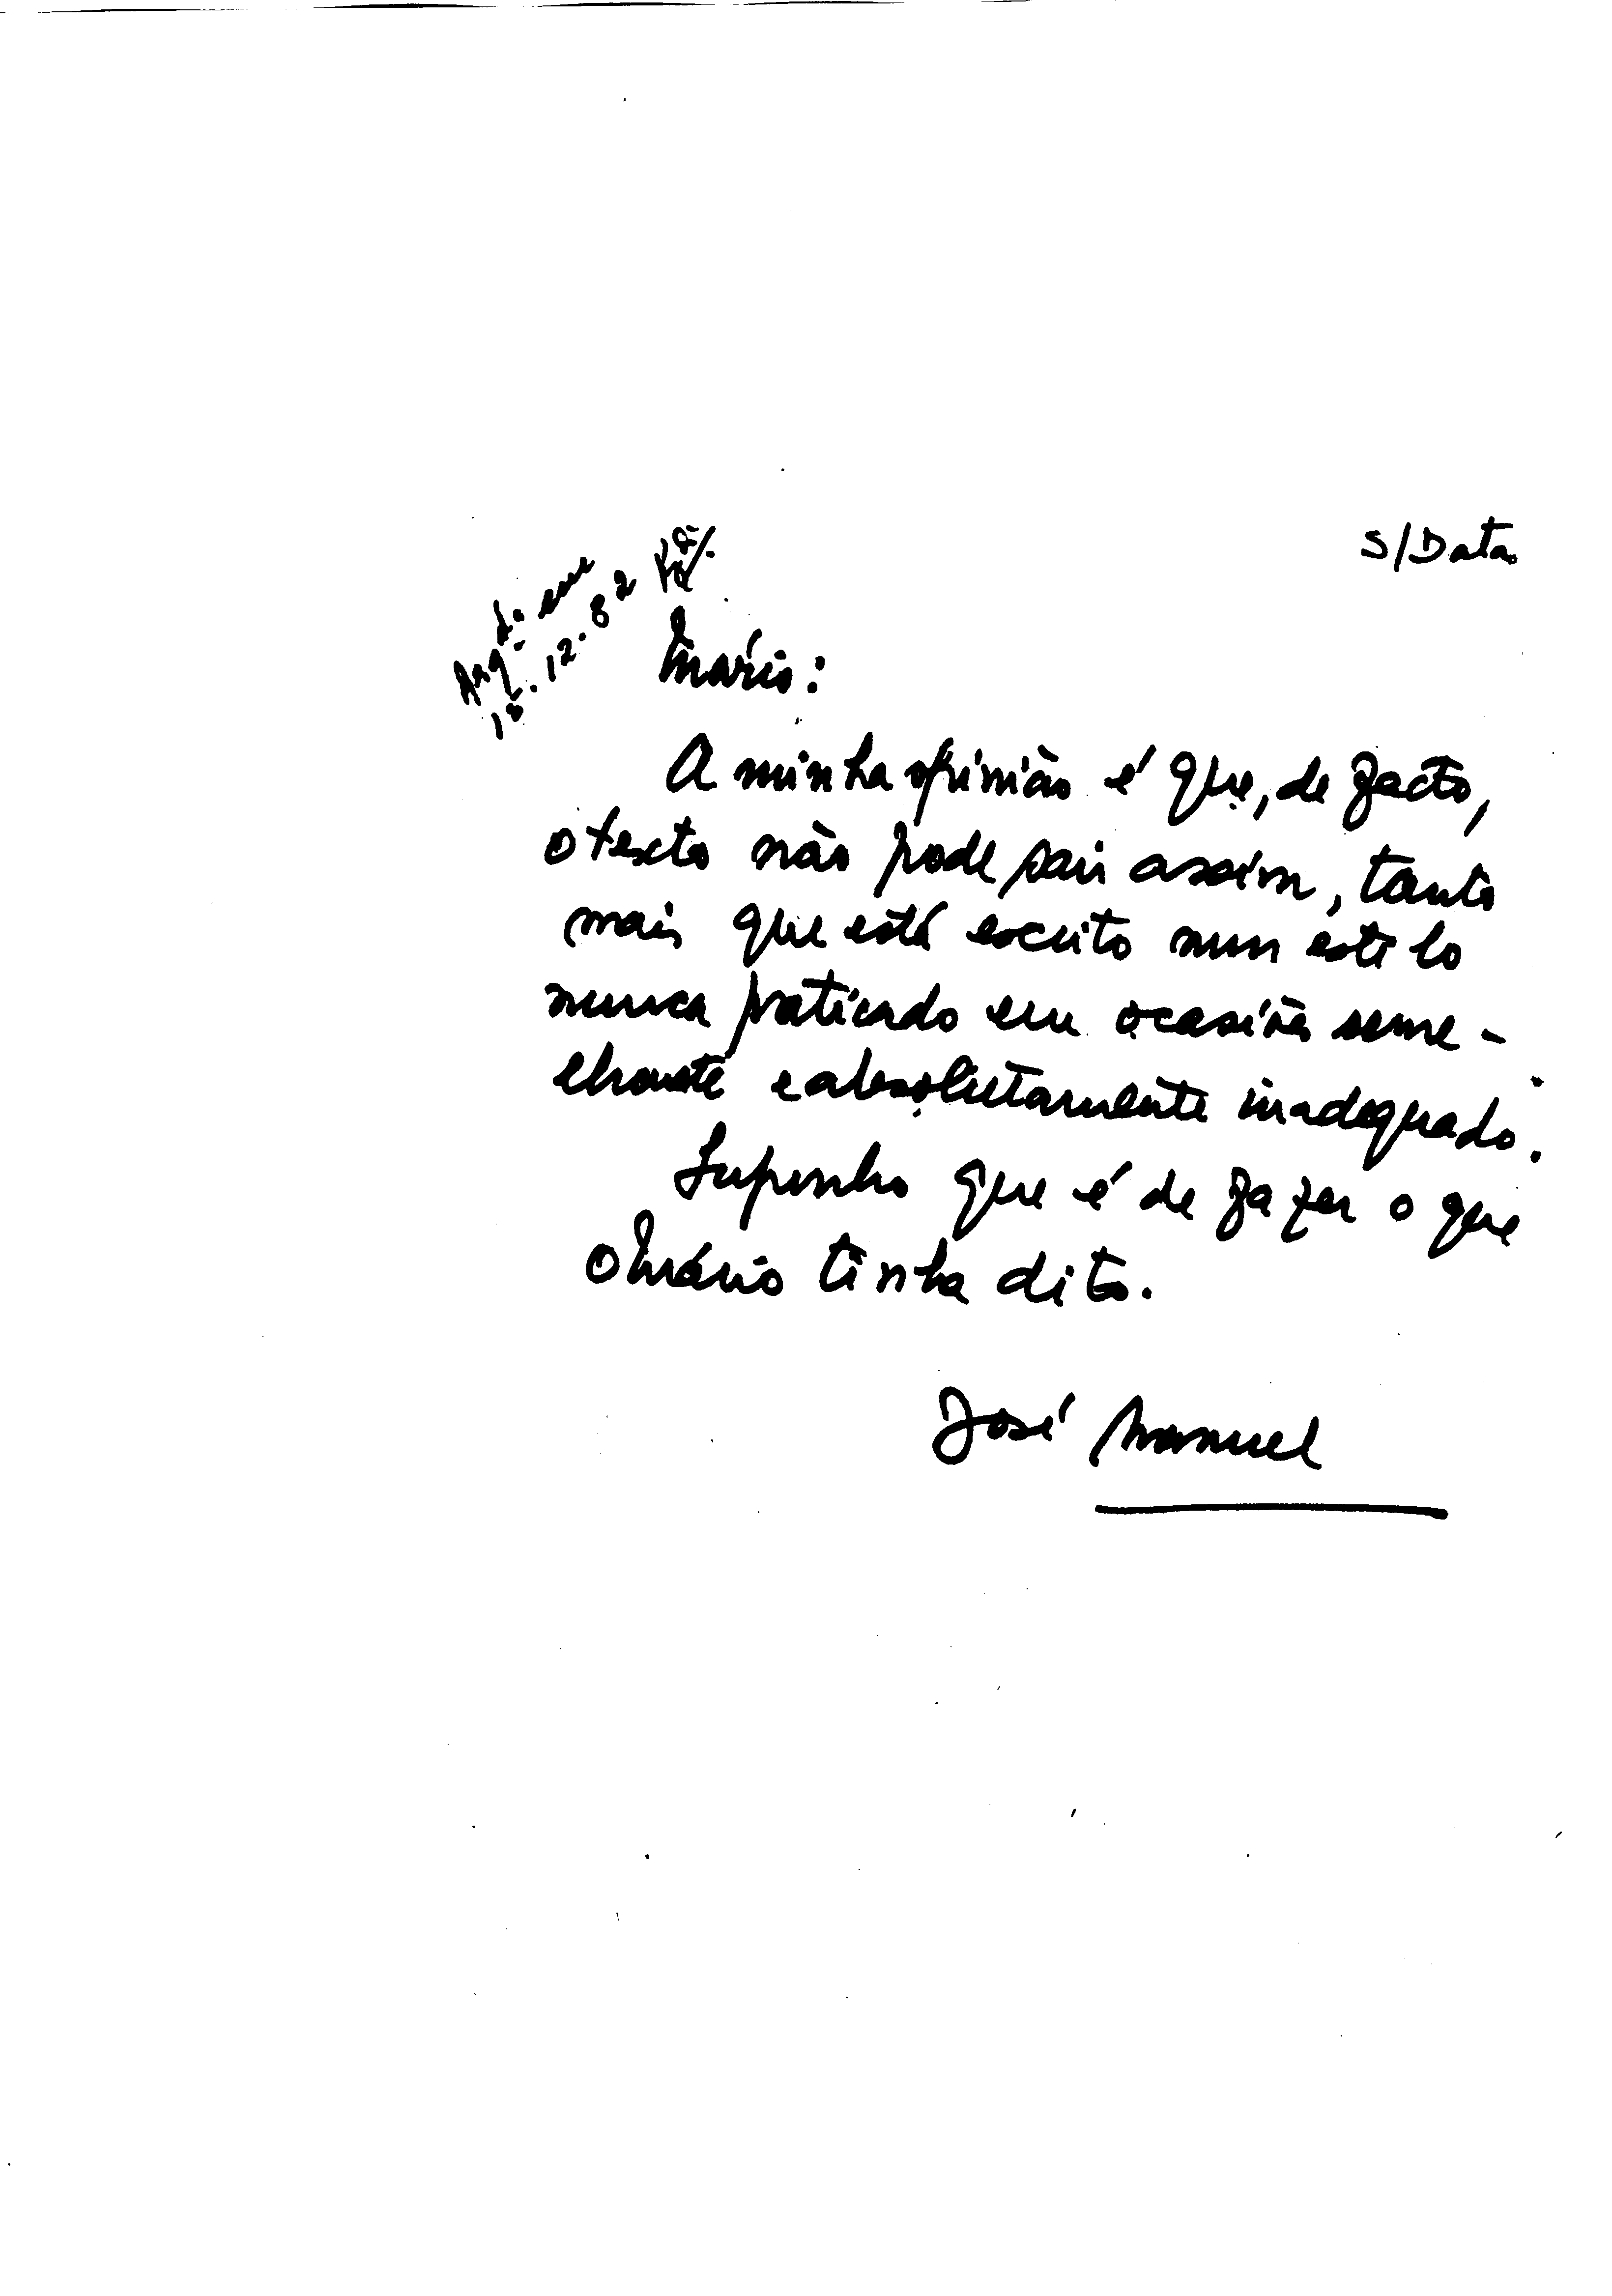 S/Data
12.82
Mário:
A minha opinião é que, de facto,
o texto não pode sair assim, tanto
mais que está escrito num estilo
nunca praticado em ocasião seme-
lhante e absolutamente inadequado.
Suponho que é de fazer o que
o Mário tinha dito.
José Manuel